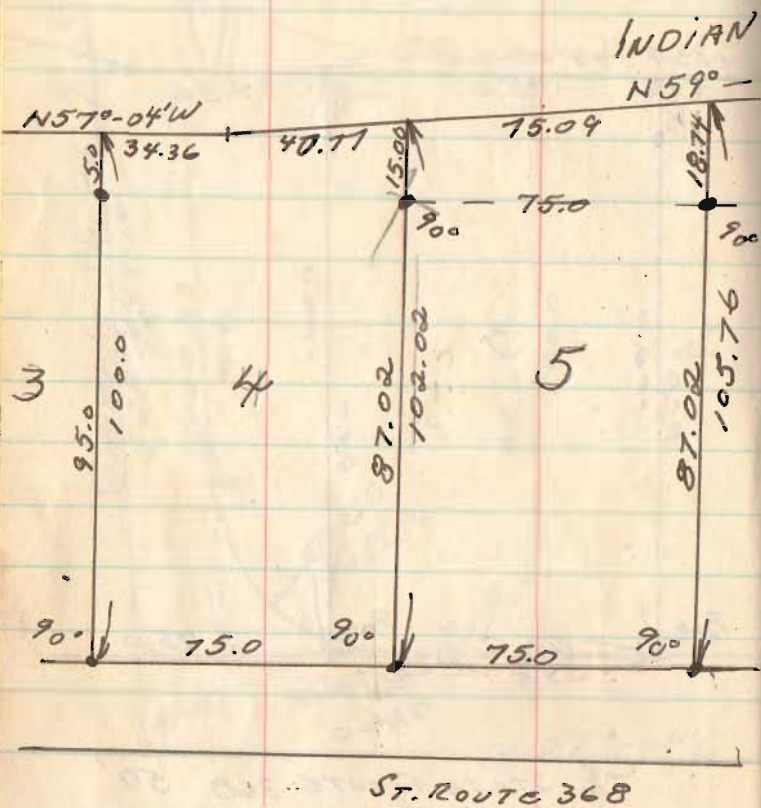 INDIAN
N59°-
N57°-04'W
34.36
40.77
75.09
5.0
15.00
18.74
75.0
90°
90°
3
4
5
95.0
100.0
87.02
102.02
87.02
105.76
90°
75.0
90°
75.0
90°
ST. ROUTE 368